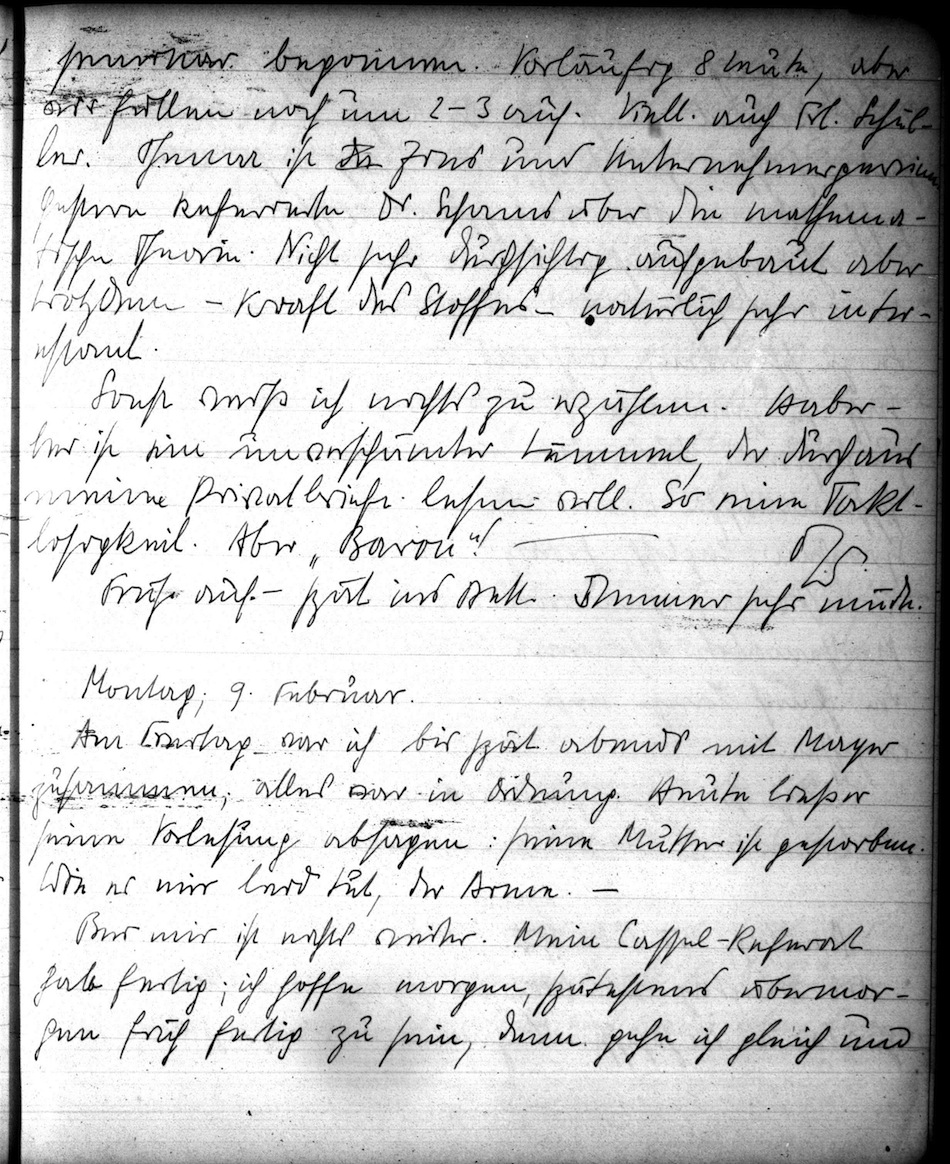 seminar begonnen. Vorläufig 8 Leute, aber
wir füllen noch um 2–3 auf. Viell. auch Frl. Schül-
ler. Thema ist Zins und Unternehmergewinn
Gestern referierte Dr. Schams über die mathema-
tische Theorie. Nicht sehr durchsichtig aufgebaut aber
trotzdem – Kraft des Stoffes – natürlich sehr inter-
essant.
Sonst weiß ich nichts zu erzählen. Haber-
ler ist ein unverschämter Lümmel, der durchaus
meine Privatbriefe lesen will. So eine Takt-
losigkeit. Aber „Baron"!
Früh auf – spät ins Bett. Immer sehr müde.
Montag, 9. Februar.
Am Freitag war ich bis spät abends mit Mayer
zusammen; alles war in Ordnung. Heute ließ er
seine Vorlesung absagen: seine Mutter ist gestorben.
Wie er mir leid tut, der Arme. –
Bei mir ist nichts weiter. Mein Cassel-Referat
halb fertig; ich hoffe morgen, spätestens übermor-
gen früh fertig zu sein, dann gehe ich gleich und